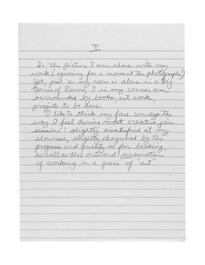 I
In this picture I am alone with my
work (ignoring for a moment the photographer)
Yet, just as my room is alone in a big
House of Rooms, I in my corner am
surrounded by books, art work,
projects to be done.
I like to think my face conveys the
way I feel during most creative jam
sessions: slightly dissatisfied at my
slowness, slightly chagrined by the
progress and quality so far lacking,
as well as the outward
of working on a piece of "art".